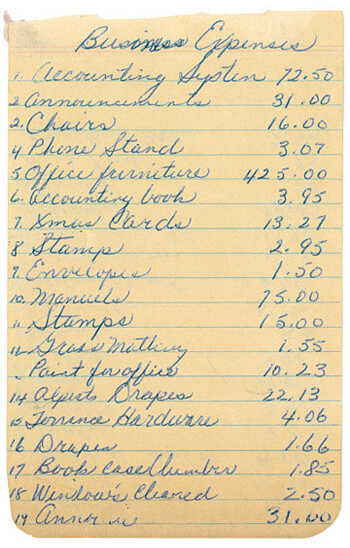 Business Expenses
1. Accounting System 72.50
2 Announcements 31.00
2. Chairs 16.00
4 Phone Stand 3.07
5 Office furniture 425.00
6. Accounting book 3.95
7. Xmas Cards 13.27
8 Stamp 2.95
9. Envelopes 1.50
10. Manuels 75.00
11. Stamps 15.00
Grass 1.55
Paint for office 10.23
14 Drapes 22.13
15 Torrance Hardware 4.06
16 Drapes 1.66
17 Book case lumber 1.85
18 Window's Cleaned 2.50
19 31.00